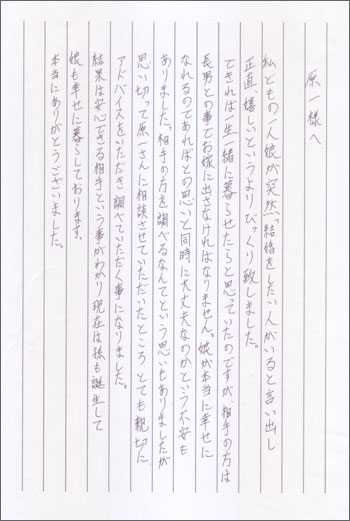 原一様へ
私どもの一人娘が突然「結婚をしたい人がいると言い出し
正直、嬉しいというよりびっくり致しました。
できれば一生一緒に暮らせたらと思っていたのですが、相手の方は
長男との事でお嫁に出さなければなりません。娘が本当に幸せに
なれるのであればとの思いと同時に大丈夫なのかという不安も
ありました。相手の方を調べるなんてという思いもありましたが
思い切って原一さんに相談させていただいたところ とても親切に
アドバイスをいただき調べていただく事になりました。
結果は安心できる相手という事がわかり現在は孫も誕生して
娘も幸せに暮らしております。
本当にありがとうございました。